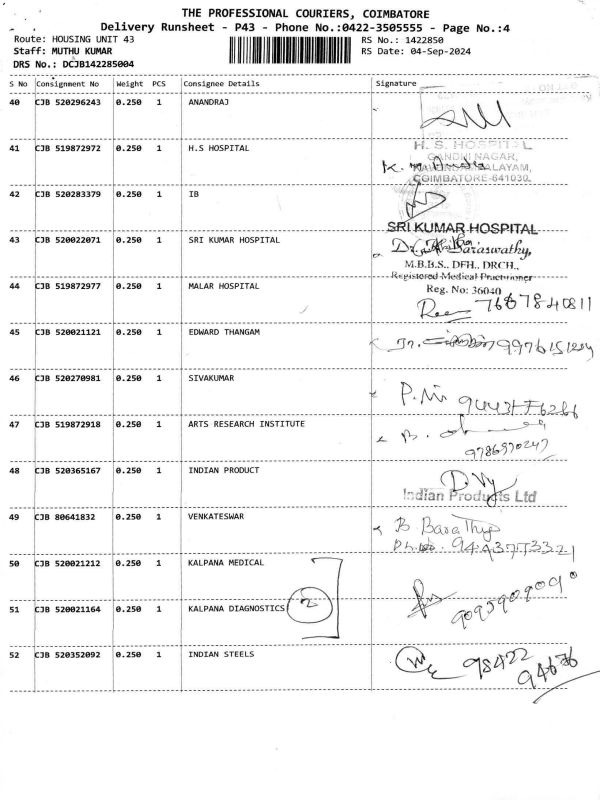 THE PROFESSIONAL COURIERS, COIMBATORE
Delivery Runsheet - P43 - Phone No.:0422-3505555 - Page No.:4
Route: HOUSING UNIT 43
RS No.: 1422850
Staff: MUTHU KUMAR
RS Date: 04-Sep-2024
DRS No.: DCJB142285004
S No Consignment No Weight PCS Consignee Details Signature
40 CJB 520296243 0.250 1 ANANDRAJ
41 CJB 519872972 0.250 1 H.S HOSPITAL
H. S. HOSPITAL
GANDHI NAGAR,
COIMBATORE-641030.
42 CJB 520283379 0.250 1 IB
43 CJB 520022071 0.250 1 SRI KUMAR HOSPITAL
SRI KUMAR HOSPITAL
Saraswathy,
M.B.B.S., DFH., DRCH.,
Registered Medical Practitioner
Reg. No: 36040
44 CJB 519872977 0.250 1 MALAR HOSPITAL
7667840811
45 CJB 520021121 0.250 1 EDWARD THANGAM
46 CJB 520270981 0.250 1 SIVAKUMAR
47 CJB 519872918 0.250 1 ARTS RESEARCH INSTITUTE
9786970247
48 CJB 520365167 0.250 1 INDIAN PRODUCT
Indian Products Ltd
49 CJB 80641832 0.250 1 VENKATESWAR
50 CJB 520021212 0.250 1 KALPANA MEDICAL
51 CJB 520021164 0.250 1 KALPANA DIAGNOSTICS 2
9095909090
52 CJB 520352092 0.250 1 INDIAN STEELS
98422
94676